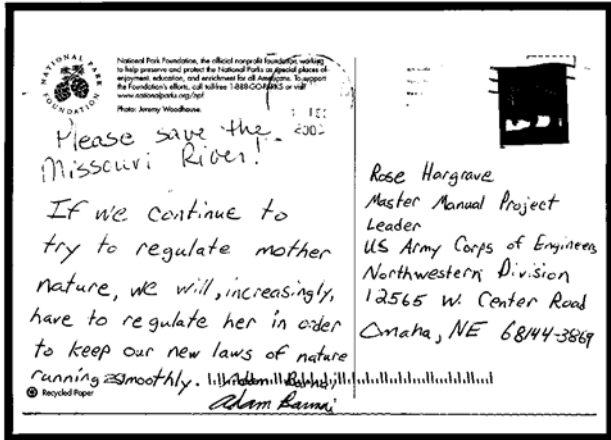 NATIONAL PARK
FOUNDATION
National Park Foundation, the official nonprofit foundation, working
to help preserve and protect the National Parks as special places of
enjoyment, education, and enrichment for all Americans. To support
the Foundation's efforts, call toll-free 1-888-GO-PARKS or visit
www.nationalparks.org/npf.
Photo: Jeremy Woodhouse.
Please save the
Missouri River!
If we continue to
try to regulate mother
nature, we will, increasingly,
have to regulate her in order
to keep our new laws of nature
running smoothly.
Adam
Recycled Paper
Rose Hargrave
Master Manual Project
Leader
US Army Corps of Engineers
Northwestern Division
12565 W. Center Road
Omaha, NE 68144-3869